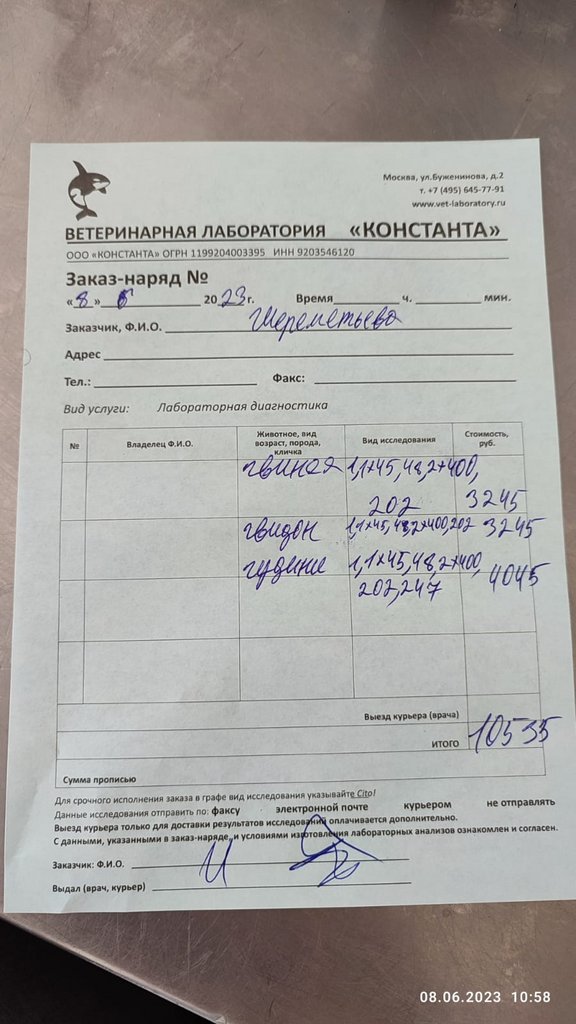 Москва, ул.Буженинова, д.2
т. +7 (495) 645-77-91
www.vet-laboratory.ru
ВЕТЕРИНАРНАЯ ЛАБОРАТОРИЯ «КОНСТАНТА»
ООО «КОНСТАНТА» ОГРН 1199204003395 ИНН 9203546120
Заказ-наряд №
«8» 6 2023г. Время ч. мин.
Заказчик, Ф.И.О. Шереметьева
Адрес
Тел.: Факс:
Вид услуги: Лабораторная диагностика
№ Владелец Ф.И.О. Животное, вид возраст, порода, кличка Вид исследования Стоимость, руб.
1,1×45,48,2×400,
202 3245
гвидон 1,1×45,48,2×400,202 3245
1,1×45,48,2×400,
202,247 4045
Выезд курьера (врача)
ИТОГО 10535
Сумма прописью
Для срочного исполнения заказа в графе вид исследования указывайте Cito!
Данные исследования отправить по: факсу электронной почте курьером не отправлять
Выезд курьера только для доставки результатов исследований оплачивается дополнительно.
С данными, указанными в заказ-наряде, и условиями изготовления лабораторных анализов ознакомлен и согласен.
Заказчик: Ф.И.О.
Выдал (врач, курьер)
08.06.2023 10:58